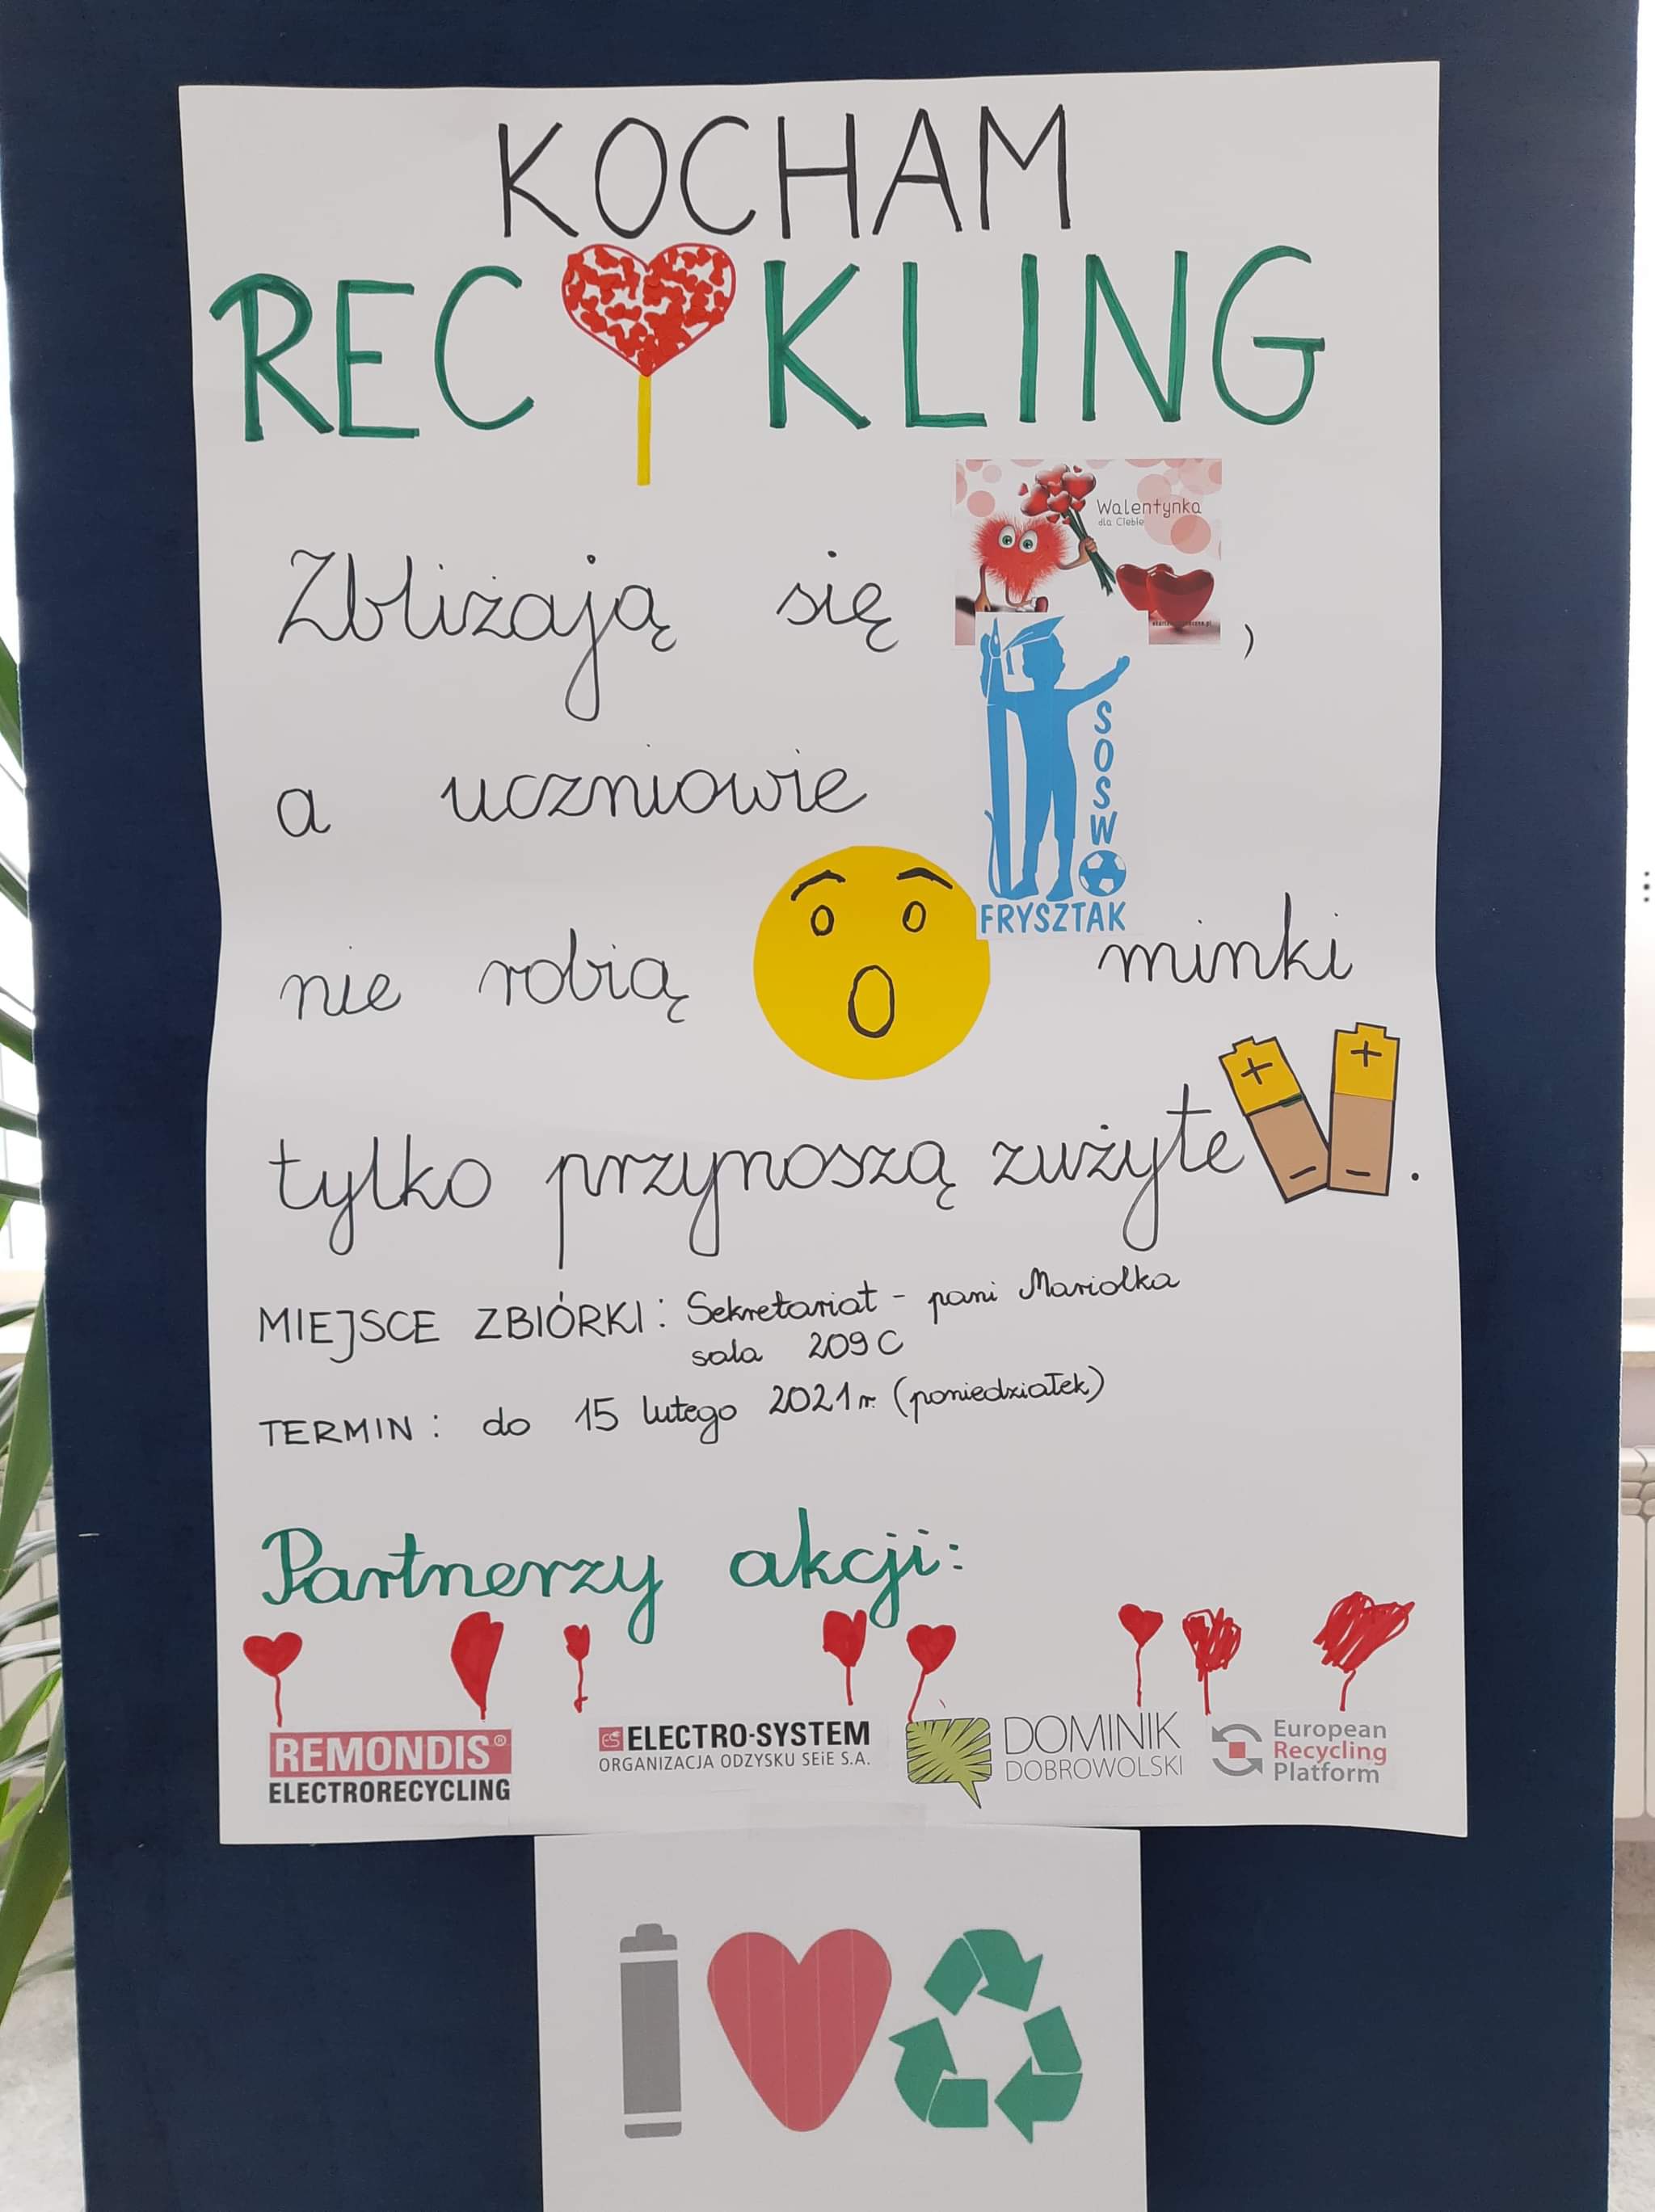 KOCHAM
REC KLING
Walentynka
dla Ciebie
Zbliżają się ,
SOSW
a uczniowie
FRYSZTAK
nie robią minki
+ +
- -
tylko przynoszą zużyte .
MIEJSCE ZBIÓRKI: Sekretariat - pani Mariolka
sala 209C
TERMIN: do 15 lutego 2021r. (poniedziałek)
Partnerzy akcji:
REMONDIS®
ELECTRORECYCLING
ES ELECTRO-SYSTEM
ORGANIZACJA ODZYSKU SEiE S.A.
DOMINIK
DOBROWOLSKI
European
Recycling
Platform